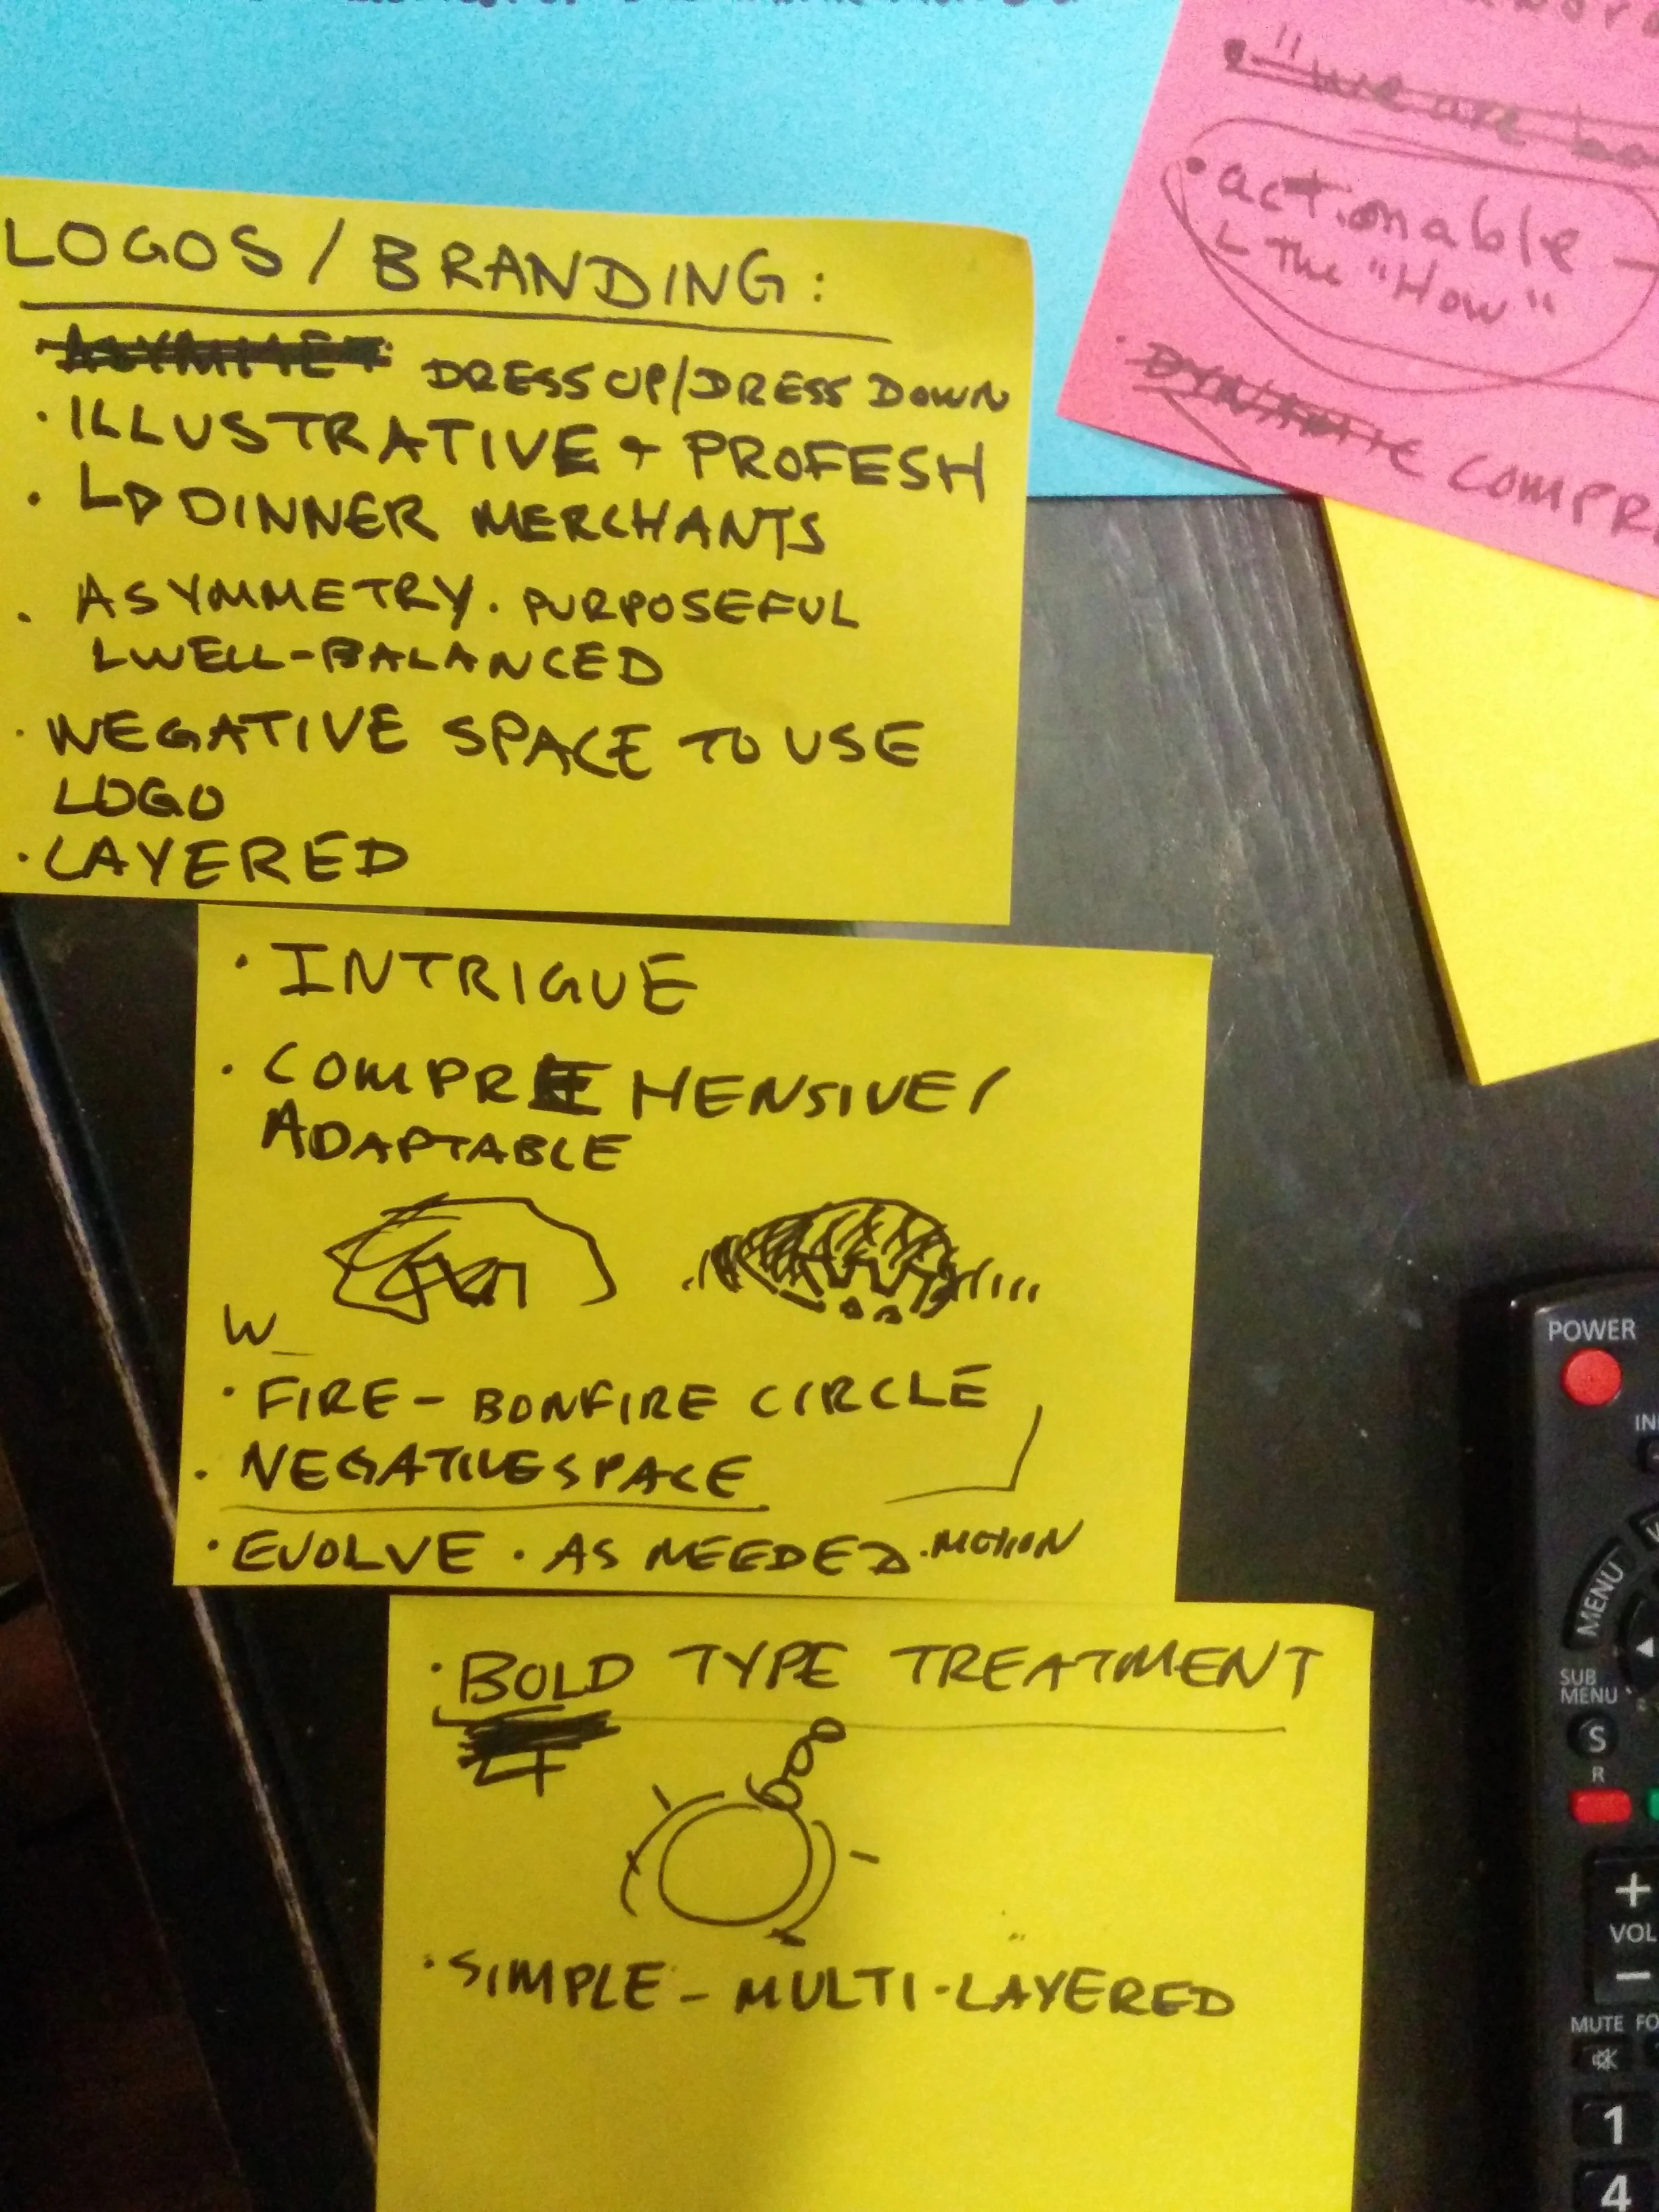 LOGOS / BRANDING:
DRESS UP/DRESS DOWN
· ILLUSTRATIVE + PROFESH
· DINNER MERCHANTS
· ASYMMETRY · PURPOSEFUL
L WELL-BALANCED
· NEGATIVE SPACE TO USE
LOGO
· LAYERED
· INTRIGUE
· COMPREHENSIVE/
ADAPTABLE
W_
· FIRE - BONFIRE CIRCLE
· NEGATIVE SPACE
· EVOLVE · AS NEEDED · MOTION
· BOLD TYPE TREATMENT
· SIMPLE - MULTI-LAYERED
· "we are
· actionable -
L The "How"
· DYNAMIC COMPR
POWER
MENU
SUB
MENU
S
R
+
VOL
-
MUTE
1
4